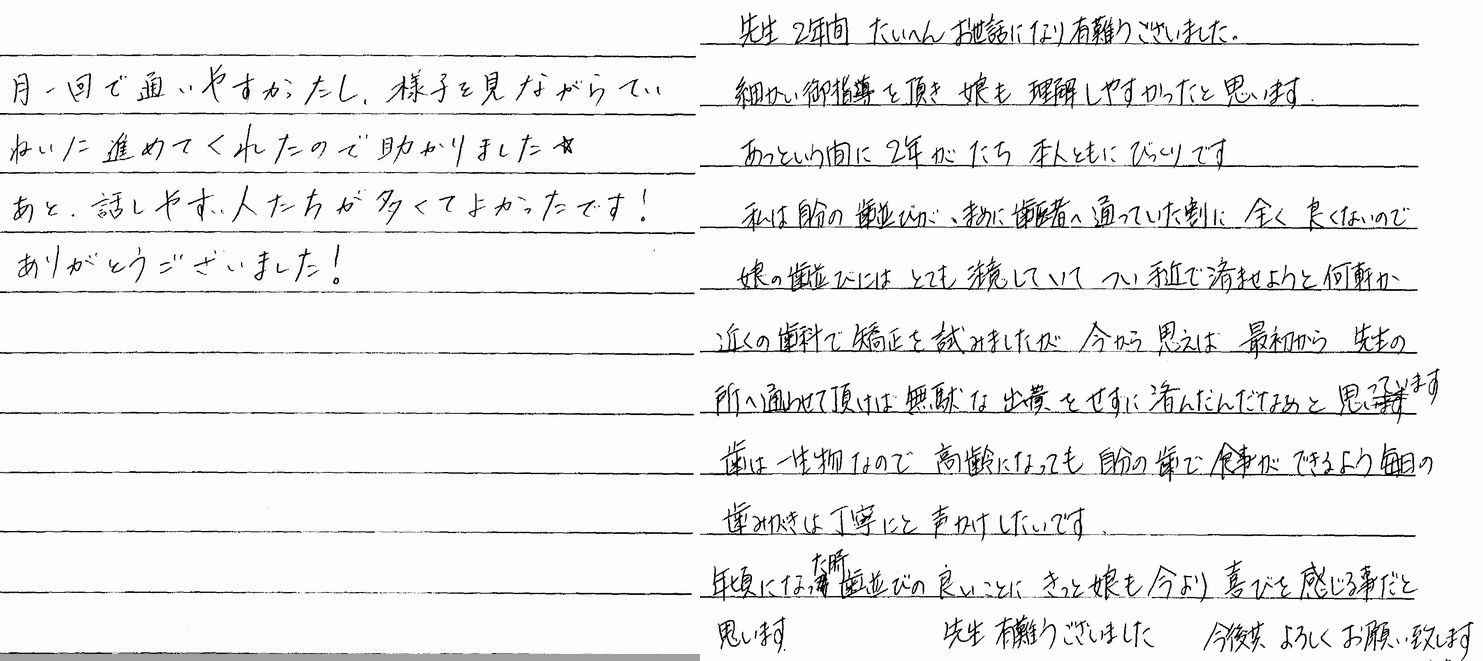 月一回で通いやすかったし、様子を見ながらてい
ねいに進めてくれたので助かりました☆
あと、話しやすい人たちが多くてよかったです！
ありがとうございました！
先生 2年間 たいへん お世話になり有難うございました。
細かい御指導を頂き 娘も 理解しやすかったと思います。
あっという間に 2年が たち 本人ともに びっくりです
私は自分の歯並びが、まめに歯医者へ通っていた割に 全く 良くないので
娘の歯並びには とても 注意していて つい 手近で済ませようと何軒か
近くの歯科で矯正を試みましたが 今から思えば 最初から 先生の
所へ通わせて頂けば無駄な出費をせずに済んだんだなあと思っています
歯は一生物なので 高齢になっても 自分の歯で食事ができるよう毎日の
歯みがきは丁寧にと声かけしたいです。
年頃になった時歯並びの良いことに きっと娘も今より喜びを感じる事だと
思います。 先生有難うございました 今後共 よろしくお願い致します